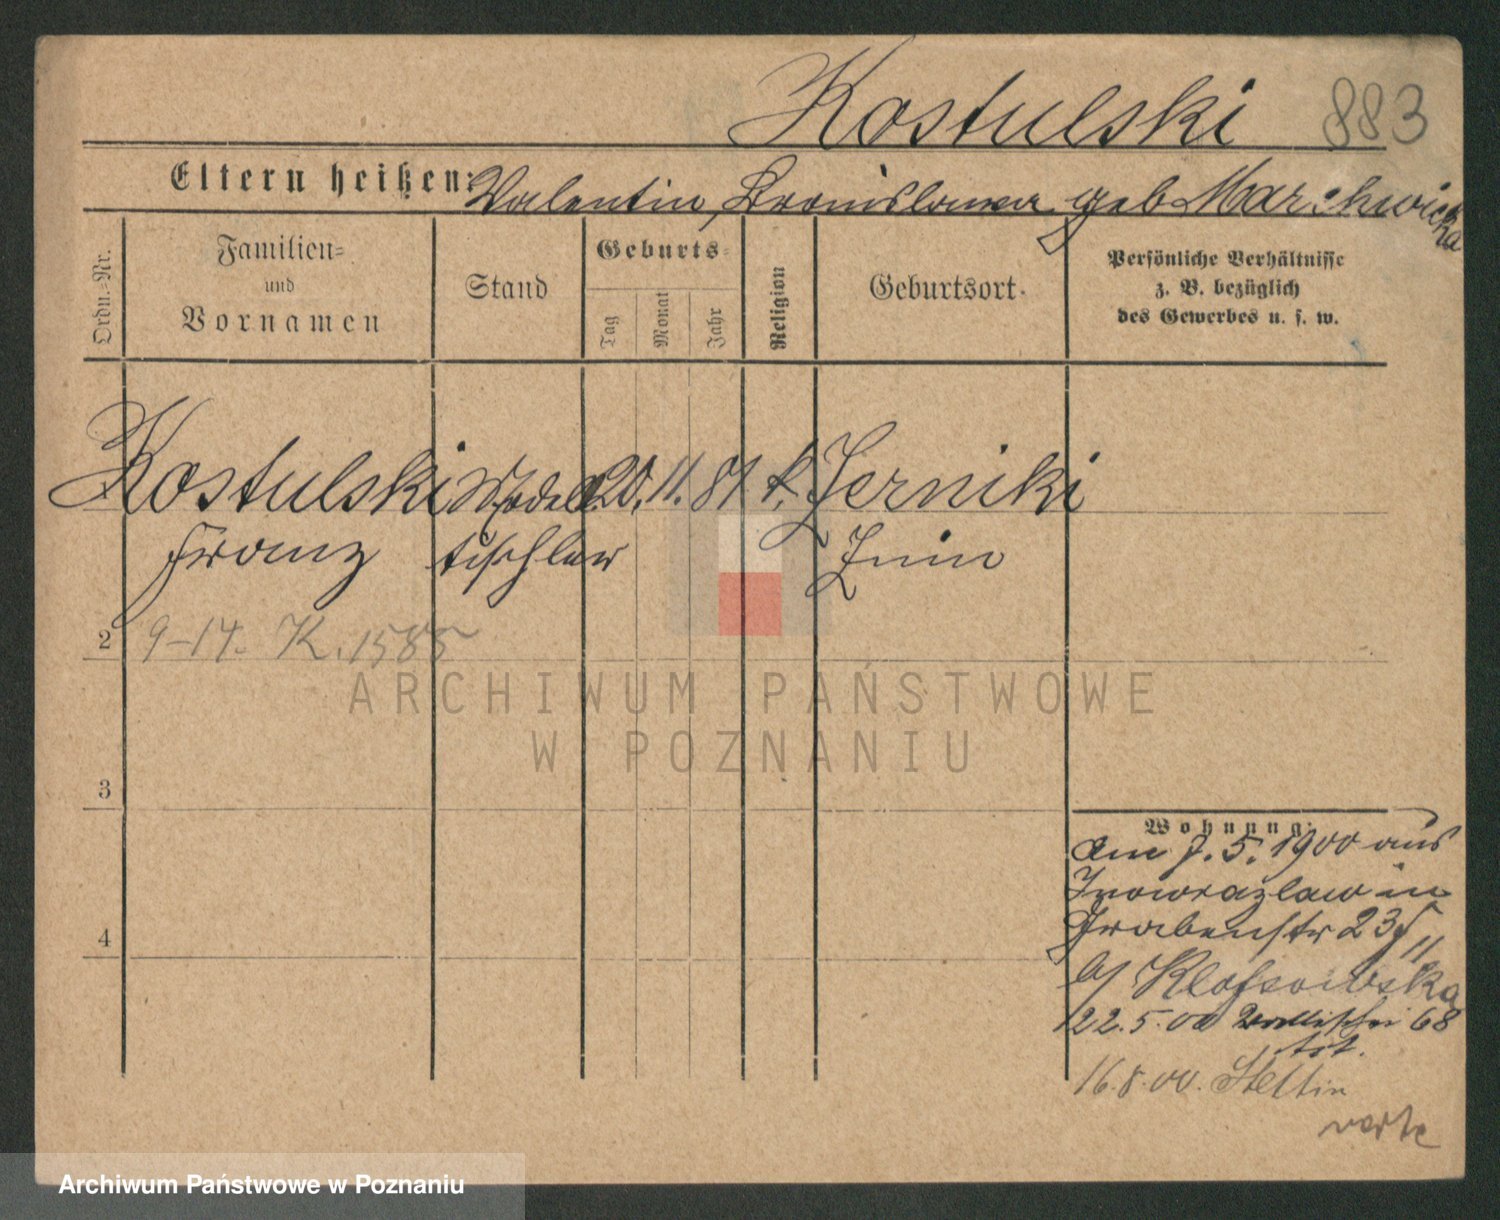 Kostulski 883
Eltern heißen: Valentin, Bronislawa geb Marchwicka
Ordn.-Nr.
Familien- und Vornamen
Stand
Geburts-
Tag
Monat
Jahr
Religion
Geburtsort
Persönliche Verhältnisse
z. B. bezüglich
des Gewerbes u. s. w.
Kostulski Modell 20. 11. 81 k. Zerniki
Franz tischler Znin
2 9-14. K. 1585
3
4
Wohnung:
am 7. 5. 1900 aus
Inowrazlaw in
Grabenstr 23 II
b/
22.5.00 Wallischei 68
16.8.00. Stettin
verte
ARCHIWUM PAŃSTWOWE
W POZNANIU
Archiwum Państwowe w Poznaniu